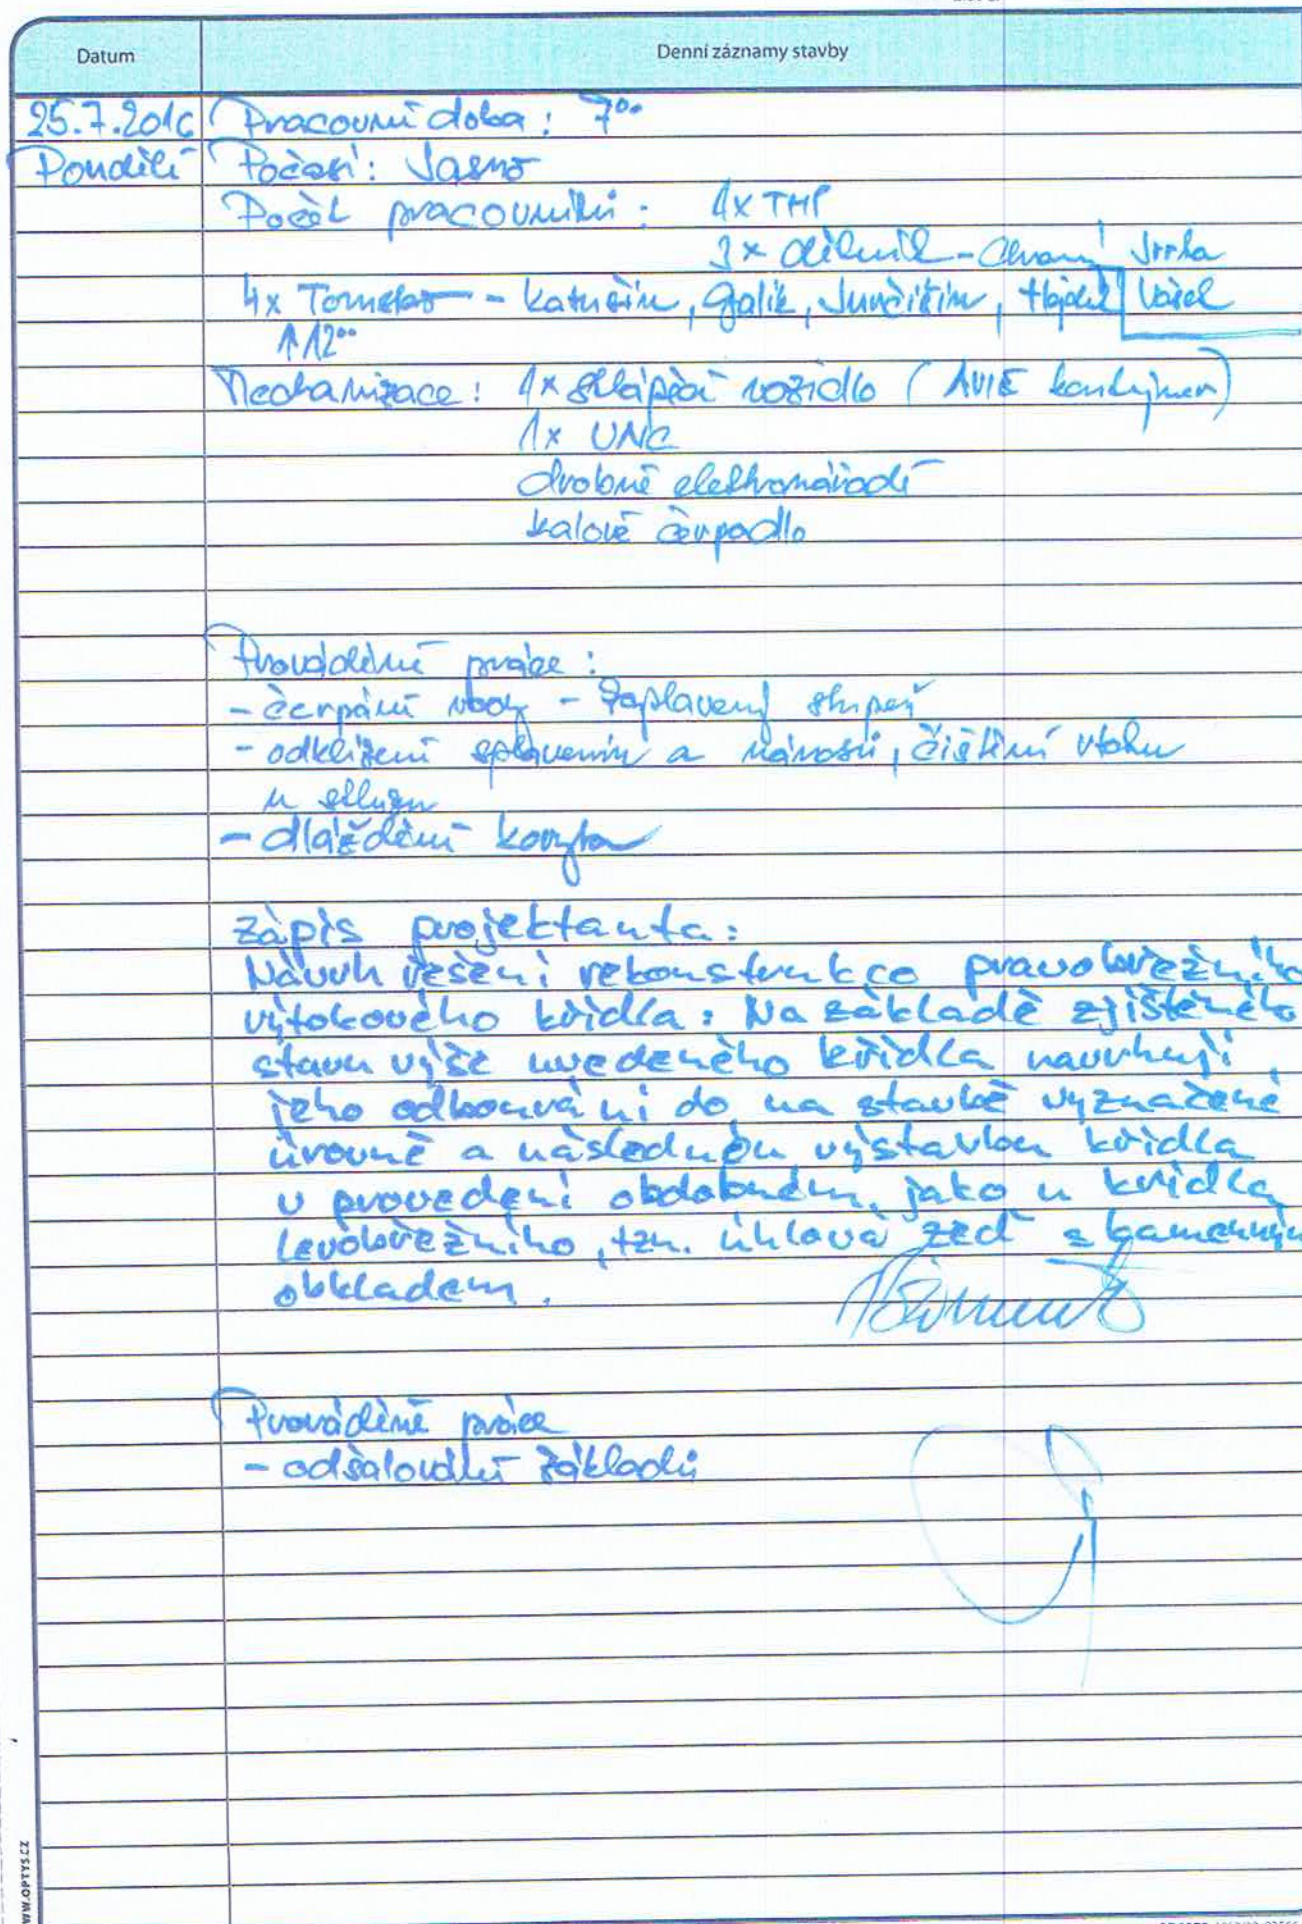 Datum Denní záznamy stavby
25.7.2016 Pracovní doba: 7⁰⁰
Pondělí Počasí: Jasno
Počet pracovníků: 1x THP
3x dělník -
4x - Katuščin, Galik, Vašek
↑12⁰⁰
Mechanizace: 1x sklápěcí vozidlo (AVIE kontejner)
1x UNC
drobné elektronářadí
kalové čerpadlo
Prováděné práce:
- čerpání vody - zaplavený stupeň
- odklízení splavenin a nánosů, čištění vtoku
u
- dláždění koryta
Zápis projektanta:
Návrh řešení rekonstrukce pravobřežního
výtokového křídla: Na základě zjištěného
stavu výše uvedeného křídla navrhuji
jeho odbourání do na stavbě vyznačené
úrovně a následnou výstavbu křídla
v provedení obdobném, jako u křídla
levobřežního, tzn. úhlová zeď s kamenným
obkladem.
Prováděné práce
- odšalování základů
WWW.OPTYS.CZ